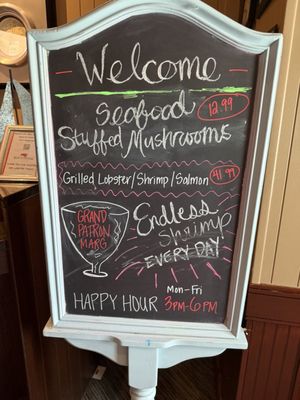 Welcome
Seafood 12.99
Stuffed Mushrooms
Grilled Lobster/Shrimp/Salmon 41.99
GRAND
PATRON
MARG
Endless
Shrimp
EVERY DAY
Mon-Fri
HAPPY HOUR 3PM-6PM